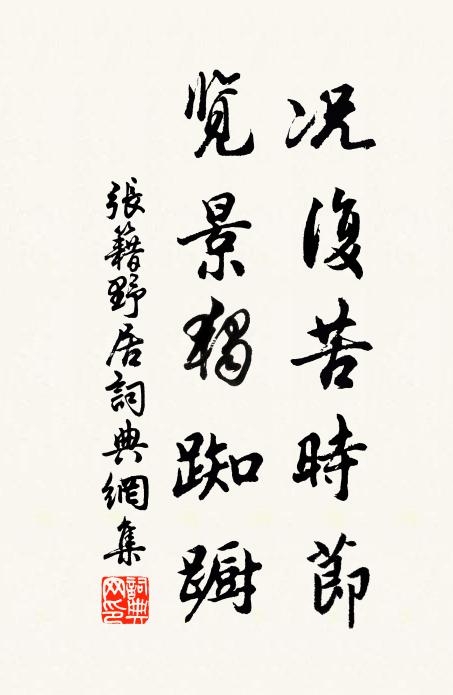 况復苦時節
览景獨踟躕
張籍野居詞典網集
詞典网印